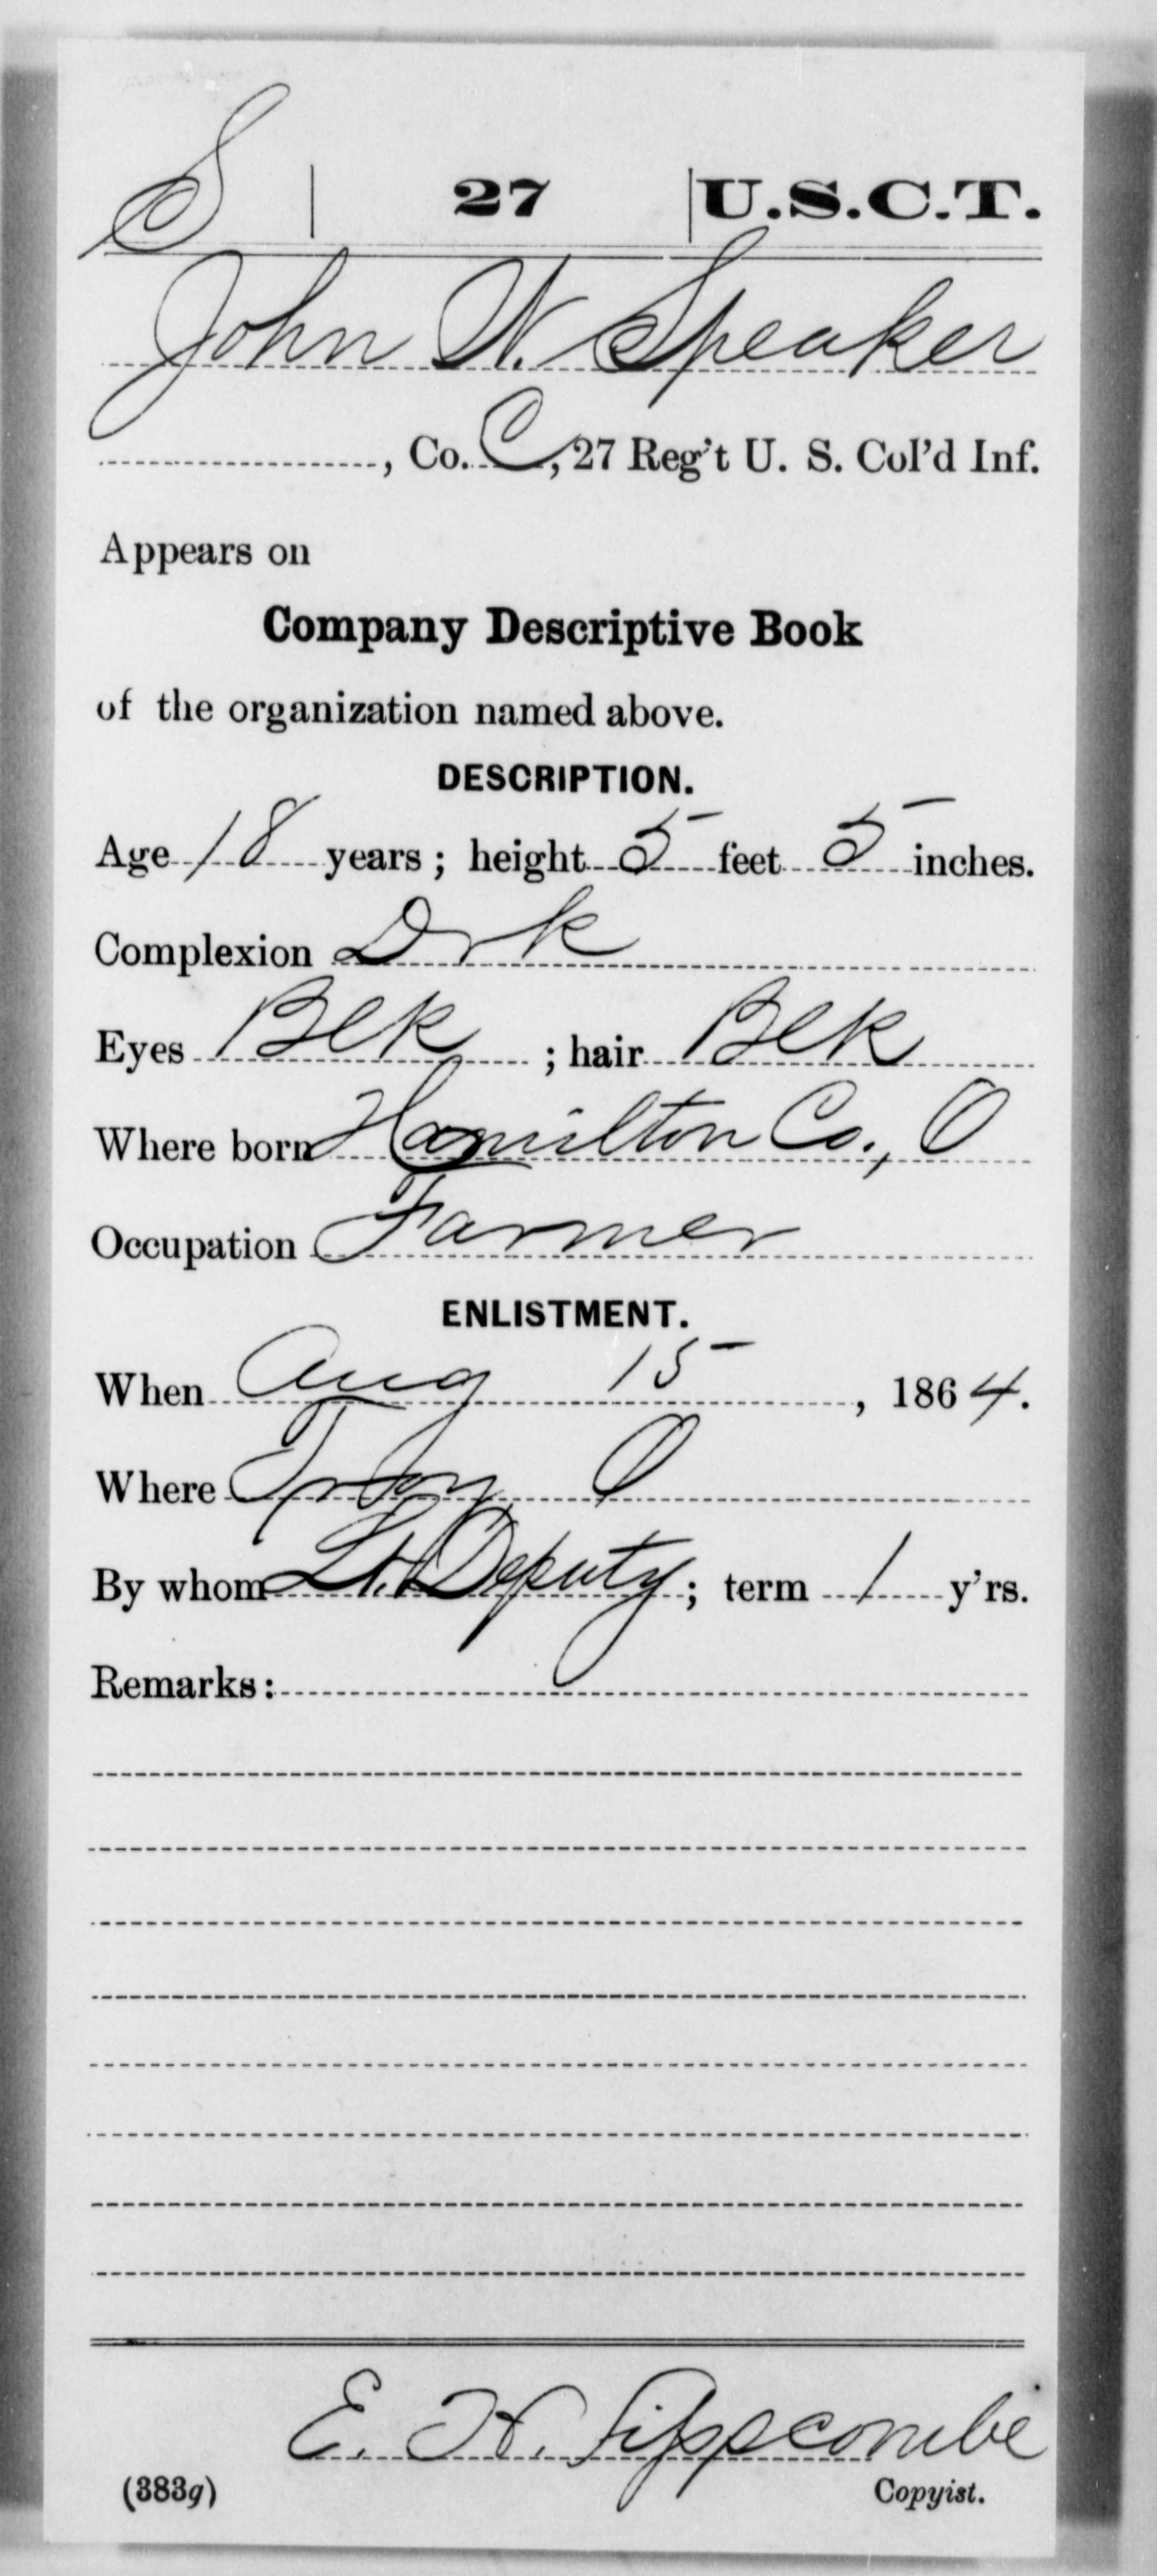 S | 27 | U.S.C.T.
John W. Speaker
, Co. C, 27 Reg't U. S. Col'd Inf.
Appears on
Company Descriptive Book
of the organization named above.
DESCRIPTION.
Age 18 years; height 5 feet 5 inches.
Complexion Drk
Eyes Blk; hair Blk
Where born Hamilton Co., O
Occupation Farmer
ENLISTMENT.
When Aug 15, 1864.
Where Troy, O
By whom Lt. Deputy; term 1 y'rs.
Remarks:
E. H. Lippscombe
(383g) Copyist.